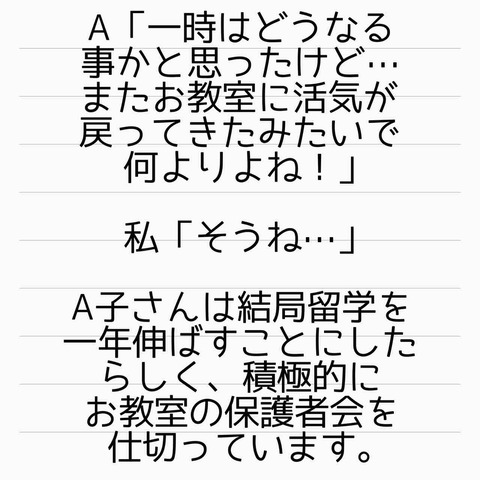 A「一時はどうなる
事かと思ったけど…
またお教室に活気が
戻ってきたみたいで
何よりよね！」
私「そうね…」
A子さんは結局留学を
一年伸ばすことにした
らしく、積極的に
お教室の保護者会を
仕切っています。